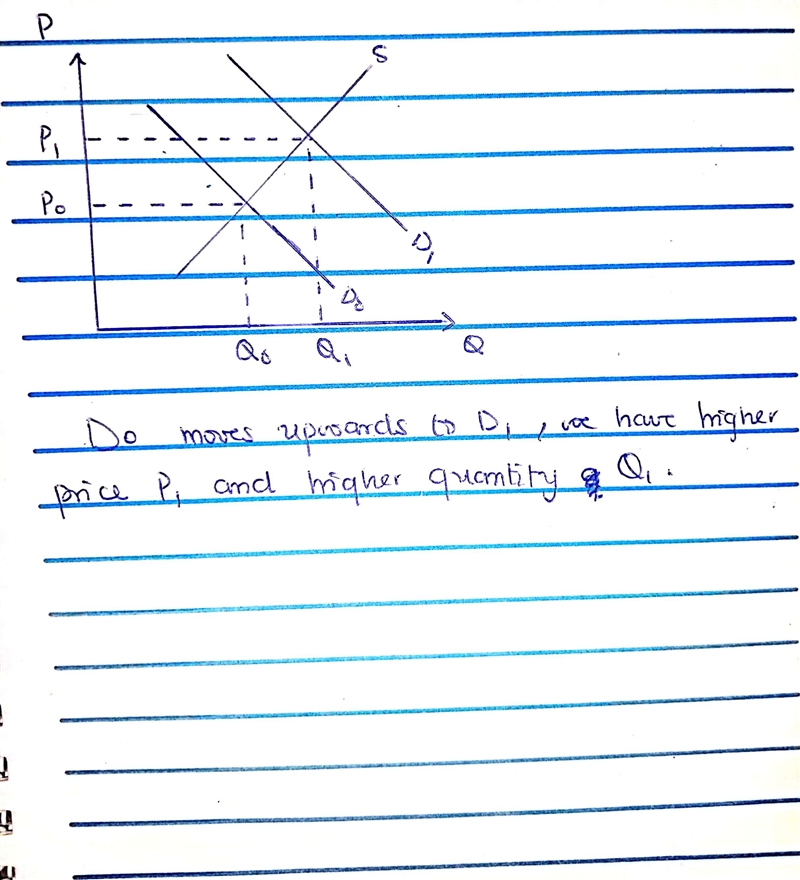 P
S
P₁
P₀
D₁
D₀
Q₀ Q₁ Q
Do moves upwards to D₁, we have higher
price P₁ and higher quantity Q₁.